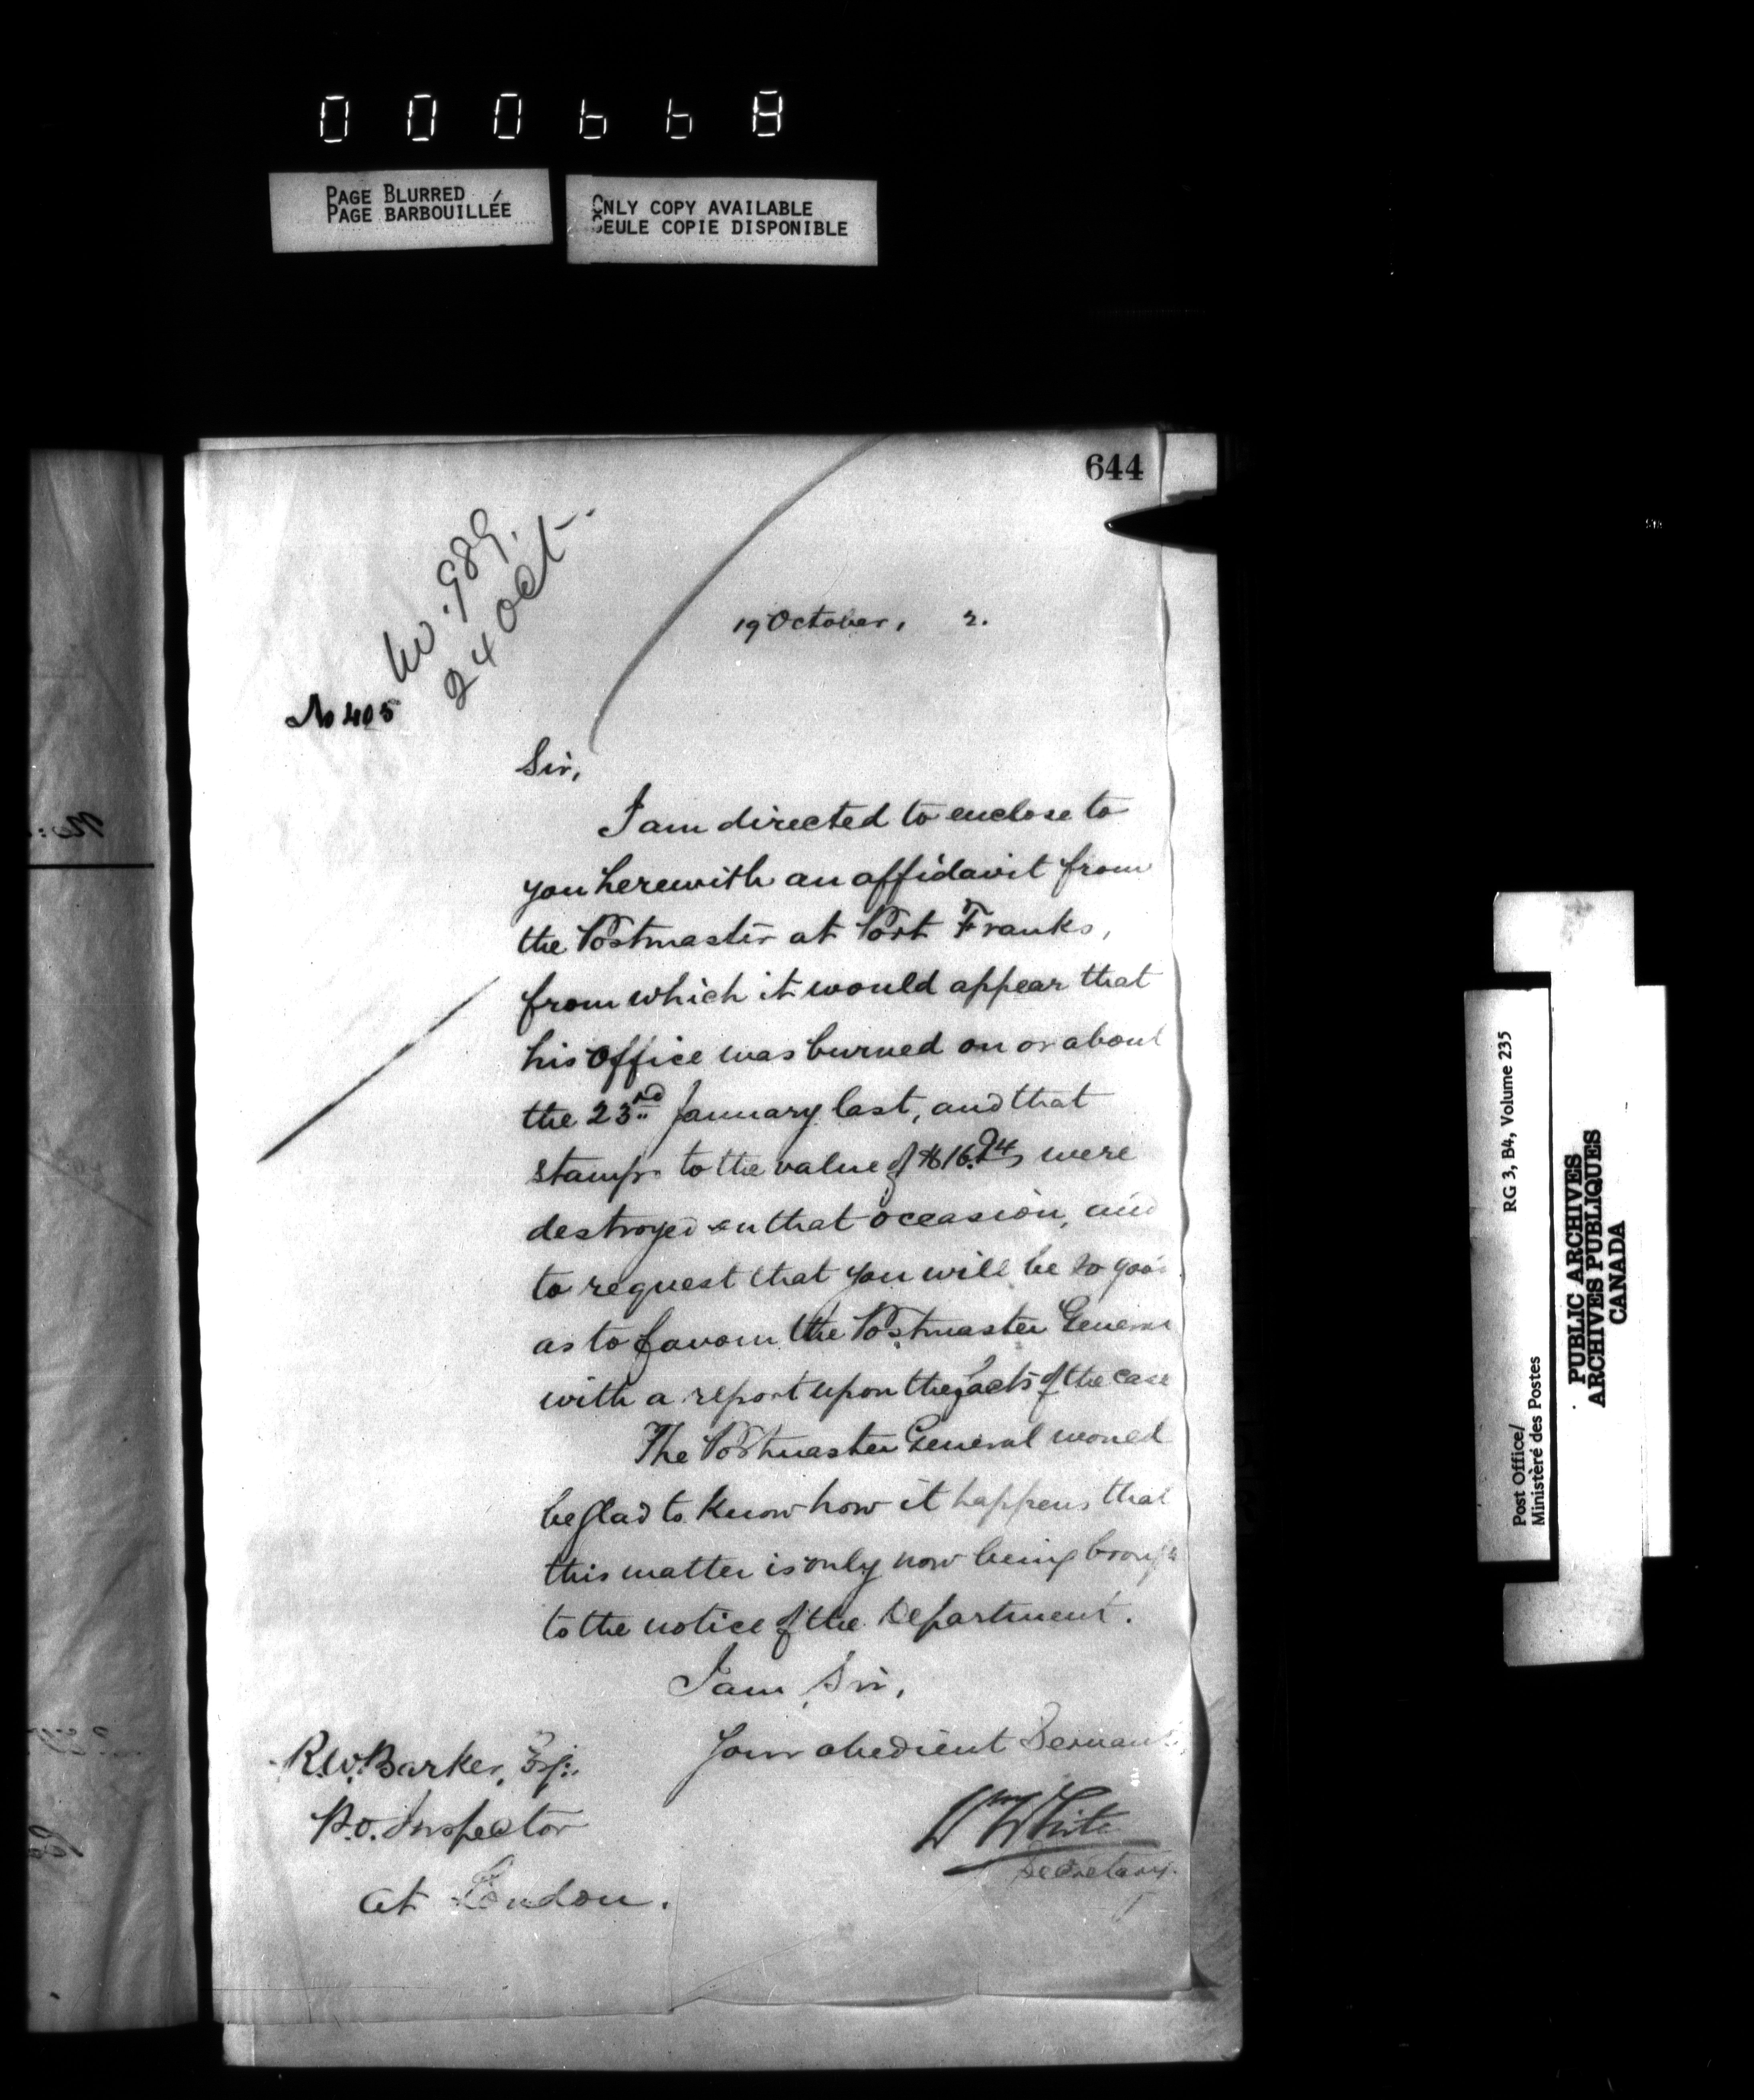 000668
PAGE BLURRED
PAGE BARBOUILLÉE
ONLY COPY AVAILABLE
SEULE COPIE DISPONIBLE
644
989.
24 Oct
19 October, 2.
No 405
Sir,
I am directed to enclose to
you herewith an affidavit from
the Postmaster at Port Franks,
from which it would appear that
his Office was burned on or about
the 23rd January last, and that
stamps to the value of were
destroyed on that occasion, and
to request that you will be so good
as to favour the Postmaster General
with a report upon the facts of the case
The Postmaster General would
be glad to know how it happens that
this matter is only now being brough
to the notice of the Department.
I am, Sir,
Your obedient Servant,
R.W. Barker, Esq:,
P.O. Inspector
at London.
Wm White
Secretary.
Post Office/
Ministère des Postes
RG 3, B4, Volume 235
PUBLIC ARCHIVES
ARCHIVES PUBLIQUES
CANADA